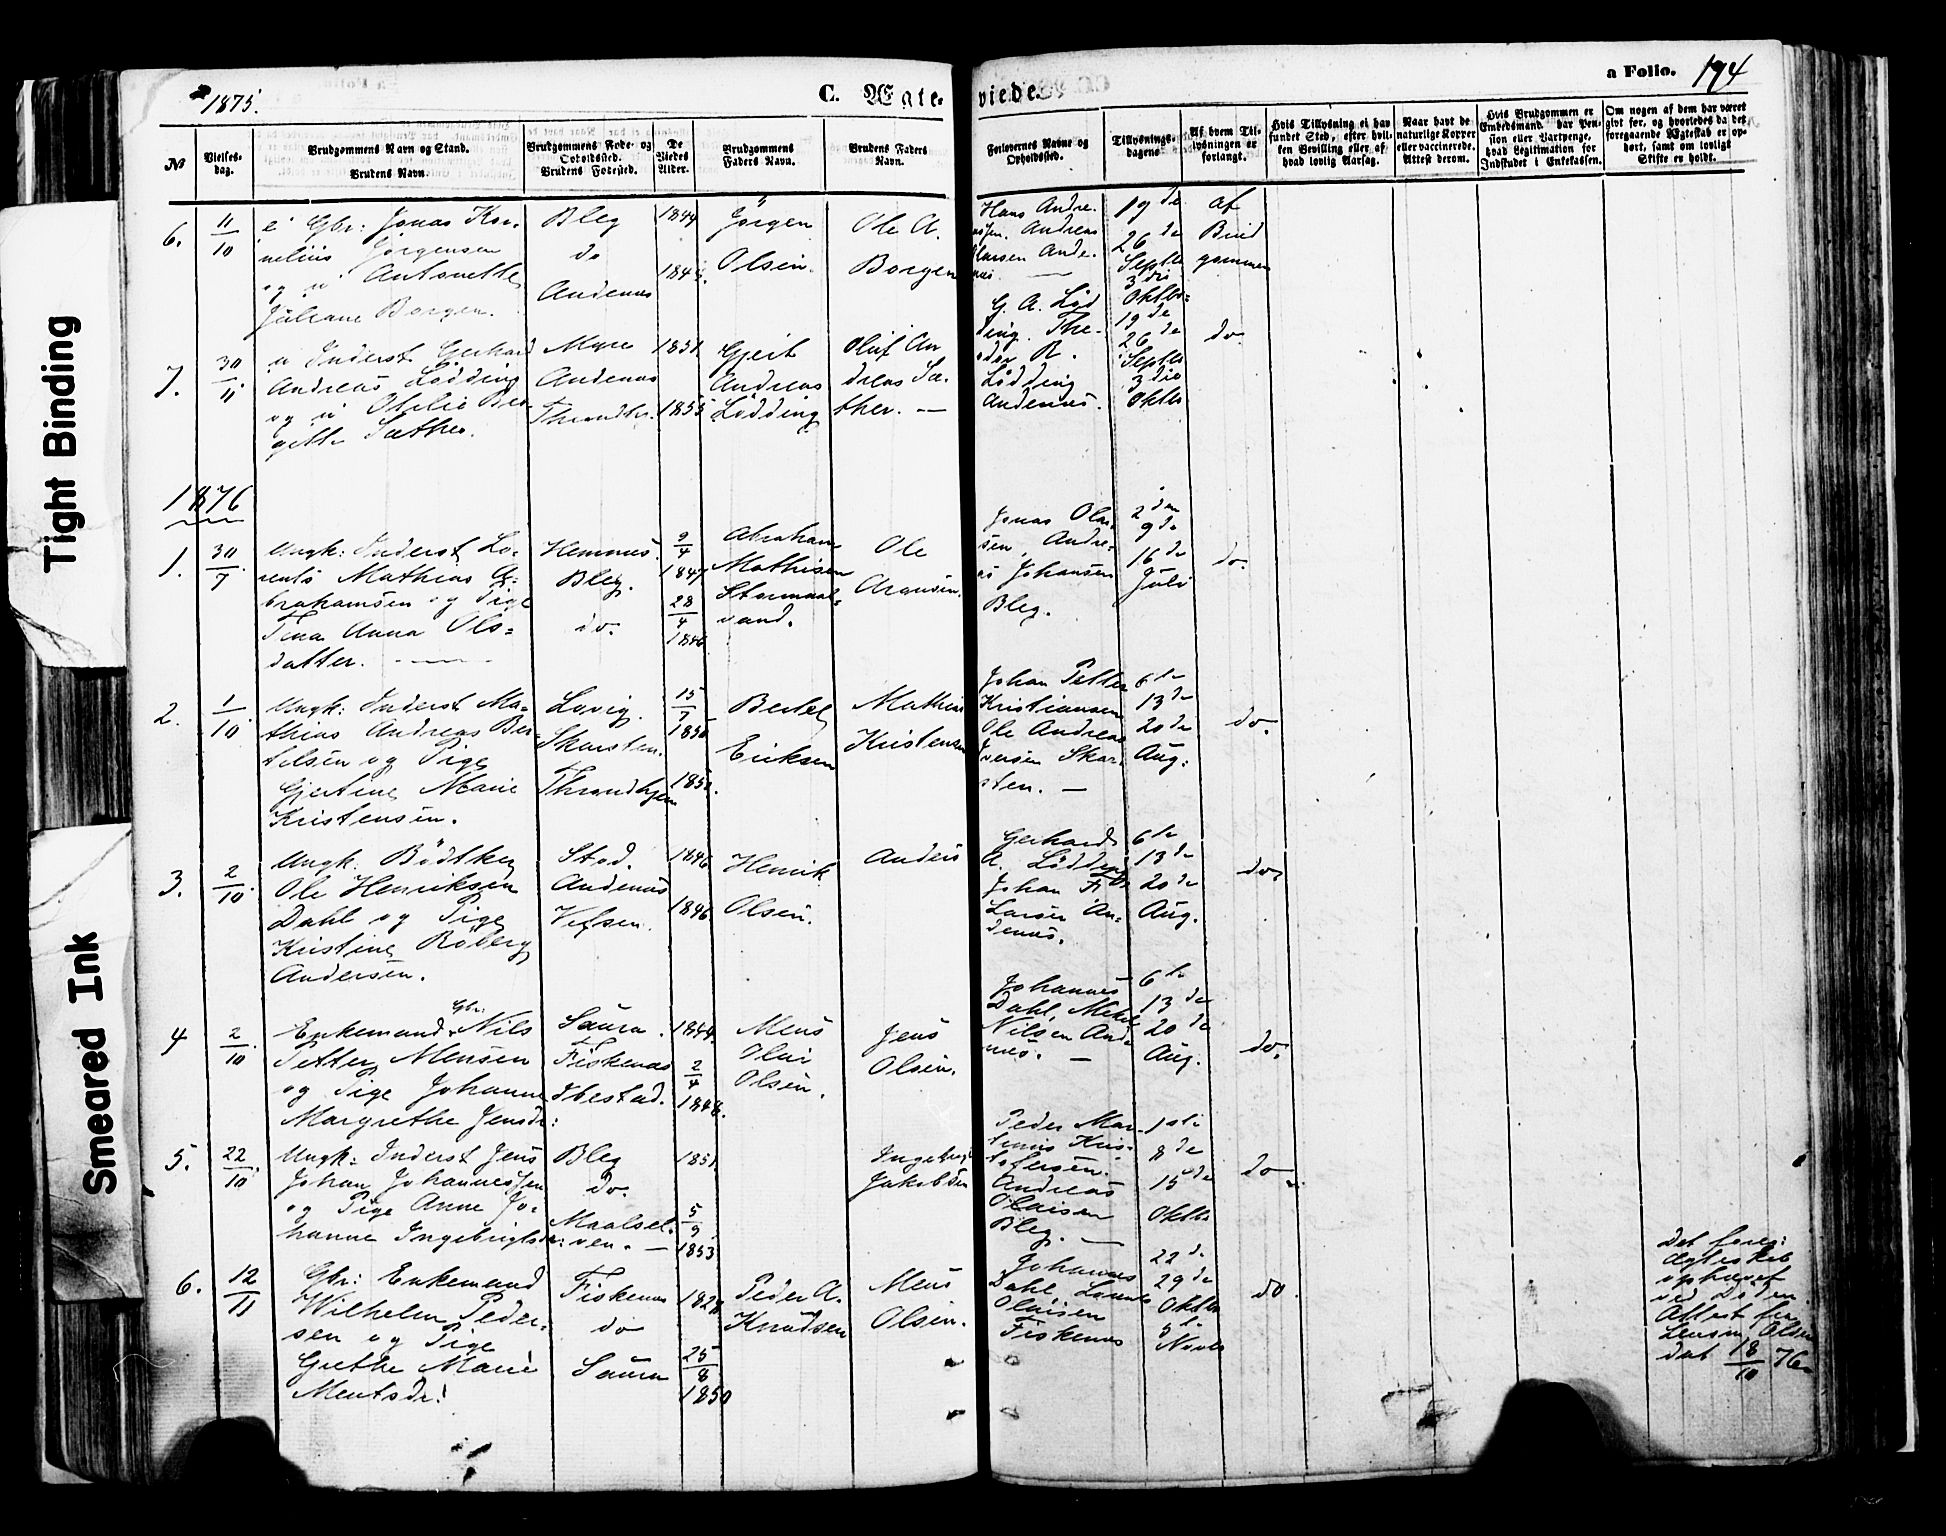 1875.
C. Ægte-
viede.
a Folio. 194
No
Vielses-
dag.
Brudgommens Navn og Stand.
Brudens Navn.
Brudgommens Føde- og
Opholdssted.
Brudens Fødested.
De
Viedes
Alder.
Brudgommens
Faders Navn.
Brudens Faders
Navn.
Forlovernes Navne og
Opholdssted.
Tillysnings-
dagene.
Af hvem Til-
lysningen er
forlangt.
Hvis Tillysning ei har
fundet Sted, efter hvil-
ken Bevilling eller af
hvad lovlig Aarsag.
Naar havt de
naturlige Kopper
eller vaccinerede.
Attest derom.
Hvis Brudgommen er
Embedsmand har Pen-
sion eller Vartpenge,
hvad Legitimation for
Indskudet i Enkekassen.
Om nogen af dem har været
givt før, og hvorledes da det
foregaaende Ægteskab er op-
hørt, samt om lovligt
Skifte er holdt.
6.
11/10
Gbr: Jonas Kor-
nelius Jørgensen
og Antonette
Juliane Borgen.
Bleg
do
Andenæs
1844
Jørgen
Olsen.
Ole A.
Borgen
Hans Andre-
assen. Andreas
Larsen Ande-
næs
19de
26de
Septbr
3die
Oktbr
af
Brud
gommen
7.
30/11
u Inderst Gerhard
Andreas Lødding
og u Otelie Ber-
gitte Sæther.
Myre
Andenæs
Throndhj.
1851
1855
Gjert
Andreas
Lødding
Oluf An
dreas Sæ-
ther. —
G. A. Lød
ding. The-
odor B.
Lødding
Andenæs.
19de
26de
Septbr
3die
Oktbr
do
1876
1.
30/7
Ungk: Inderst Lo-
rents Mathias A-
brahamsen og Pige
Tina Anna Ols-
datter.
Hemnæs.
Bleg.
do.
9/4
1847
28/4
1846
Abraham
Mathisen
Stormaal-
vand.
Ole
Aronsen.
Jonas Olai-
sen, Andre-
as Johansen
Bleg.
2den
9de
16de
Juli
do.
2.
1/10
Ungk: Inderst Ma-
thias Andreas Ber-
telsen og Pige
Gjertine Marie
Kristensen.
Lovig.
Skarsten.
Throndhjem
15/7
1850
1850.
Bertel
Eriksen
Mathias
Kristensen
Johan Petter
Kristiansen
Ole Andreas
Iversen Skar-
sten. —
6te
13de
20de
Aug:
do.
3.
2/10.
Ungk: Bødtker
Ole Henriksen
Dahl og Pige
Kristine Røberg
Andersen.
Stod.
Andenæs
Vefsen.
1846
1846
Henrik
Olsen.
Anders
Gerhard
A. Lødding
Johan Fr
Larsen An-
denæs.
6te
13de
20de
Aug.
do.
4
2/10.
Enkemand Gbr: Nils
Petter Mensen
og Pige Johanne
Margrethe Jensdr:
Saura.
Fiskenæs
Ibestad.
1844
2/4
1848.
Mens
Olai
Olsen.
Jens
Olsen.
Johannes
Dahl, Mekal
Nilsen And-
næs. —
6te
13de
20de
Aug.
do.
5.
22/10.
Ungk: Inderst Jens
Johan Johannessen
og Pige Anne Jo-
hanne Ingebrigtsdr:
Bleg
do.
Maalsel-
ven. —
1851
5/9
1853
Ingebrigt
Jakobsen
Peder Mar-
tinus Kris-
tofersen.
Andreas
Olaisen
Bleg. —
1ste
8de
15de
Oktbr
do
6.
12/11
Gbr: Enkemand
Wilhelm Peder-
sen og Pige
Grethe Marie
Mentsdr:
Fiskenæs
do
Saura
1828
25/8
1850
Peder A.
Knudsen
Mens
Olsen.
Johannes
Dahl, Lorents
Olaisen
Fiskenæs
22de
29de
Oktbr
5te
Novbr
do
Det foreg:
Ægteskab
ophævet
ved Døden.
Attest fra
Lensm. Olsen
dat 18/10 76
Tight Binding
Smeared Ink